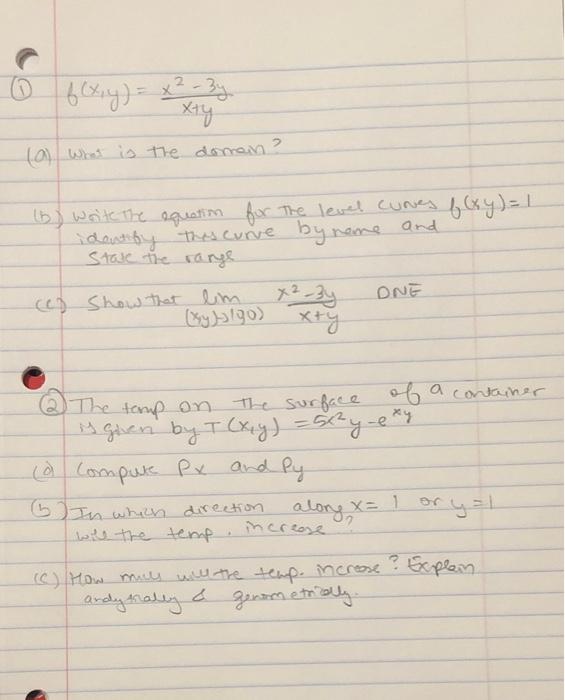 ① f(x,y) = x² - 3y / x+y
(a) What is the domain?
(b) Write the equation for the level curves f(x,y)=1
identify this curve by name and
State the range
(c) Show that lim (x,y)→(0,0) x²-3y / x+y DNE
② The temp on the surface of a container
is given by T(x,y) = 5x²y - e^xy
(a) Compute Px and Py
(b) In which direction along x = 1 or y = 1
will the temp. increase?
(c) How much will the temp. increase? Explain
analytically & geometrically.